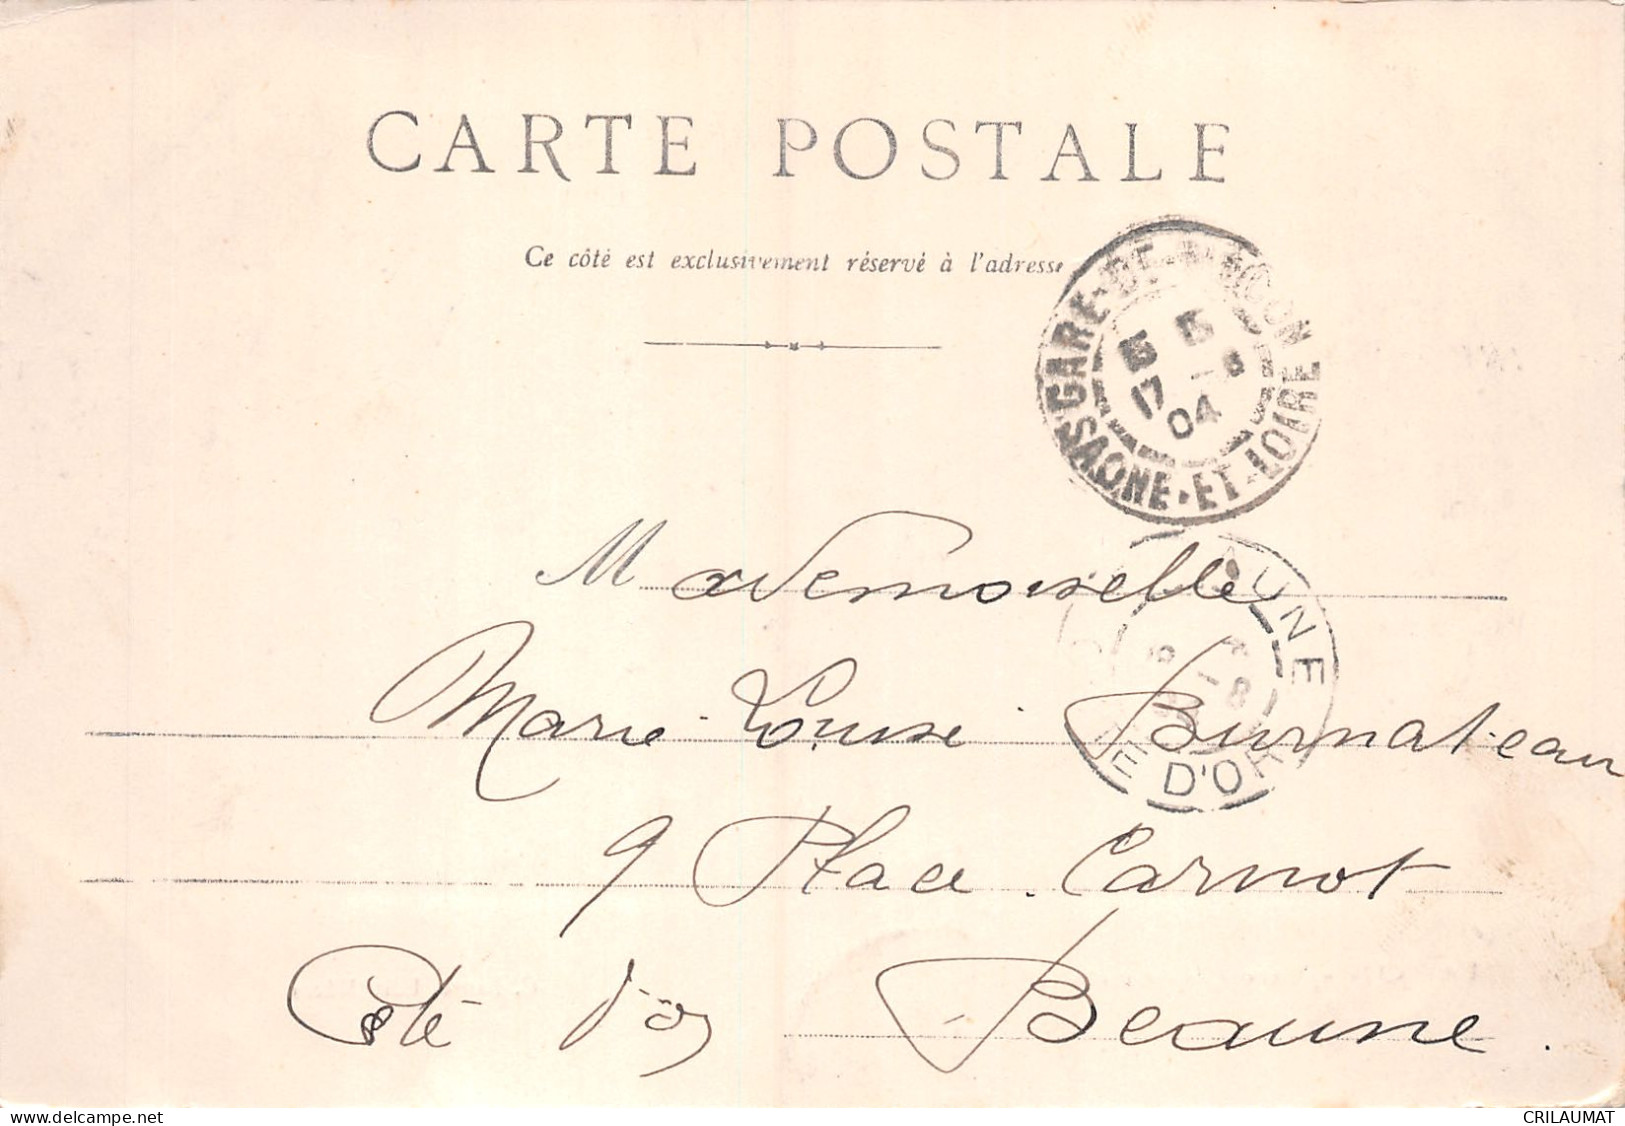 CARTE POSTALE
Ce côté est exclusivement réservé à l'adresse
GARE-DE-MACON
5
17 04
SAONE-ET-LOIRE
Mademoiselle
AUNE
Marie-Louise Burnateau
D'OR
9 Place Carnot
Côte d'or Beaune.
www.delcampe.net
CRILAUMAT